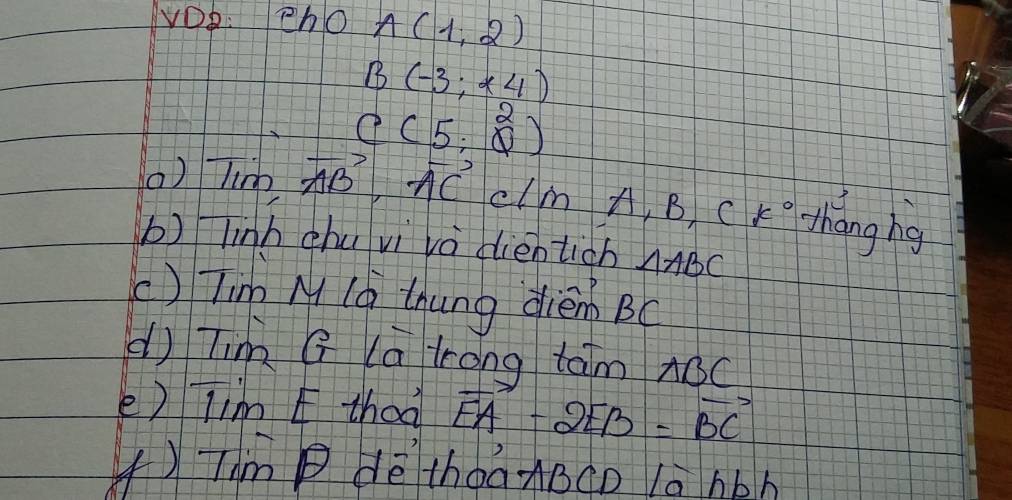 VD2: Cho A (1, 2)
B (-3; 4)
C (5; 2)
a) Tìm AB, AC c/m A, B, C k° thẳng hg
b) Tính chu vi và diện tích ΔABC
c) Tìm M là trung điểm BC
d) Tìm G là trọng tâm ABC
e) Tìm E thoả EA - 2EB = BC
f) Tìm D để thoả ABCD là hbh